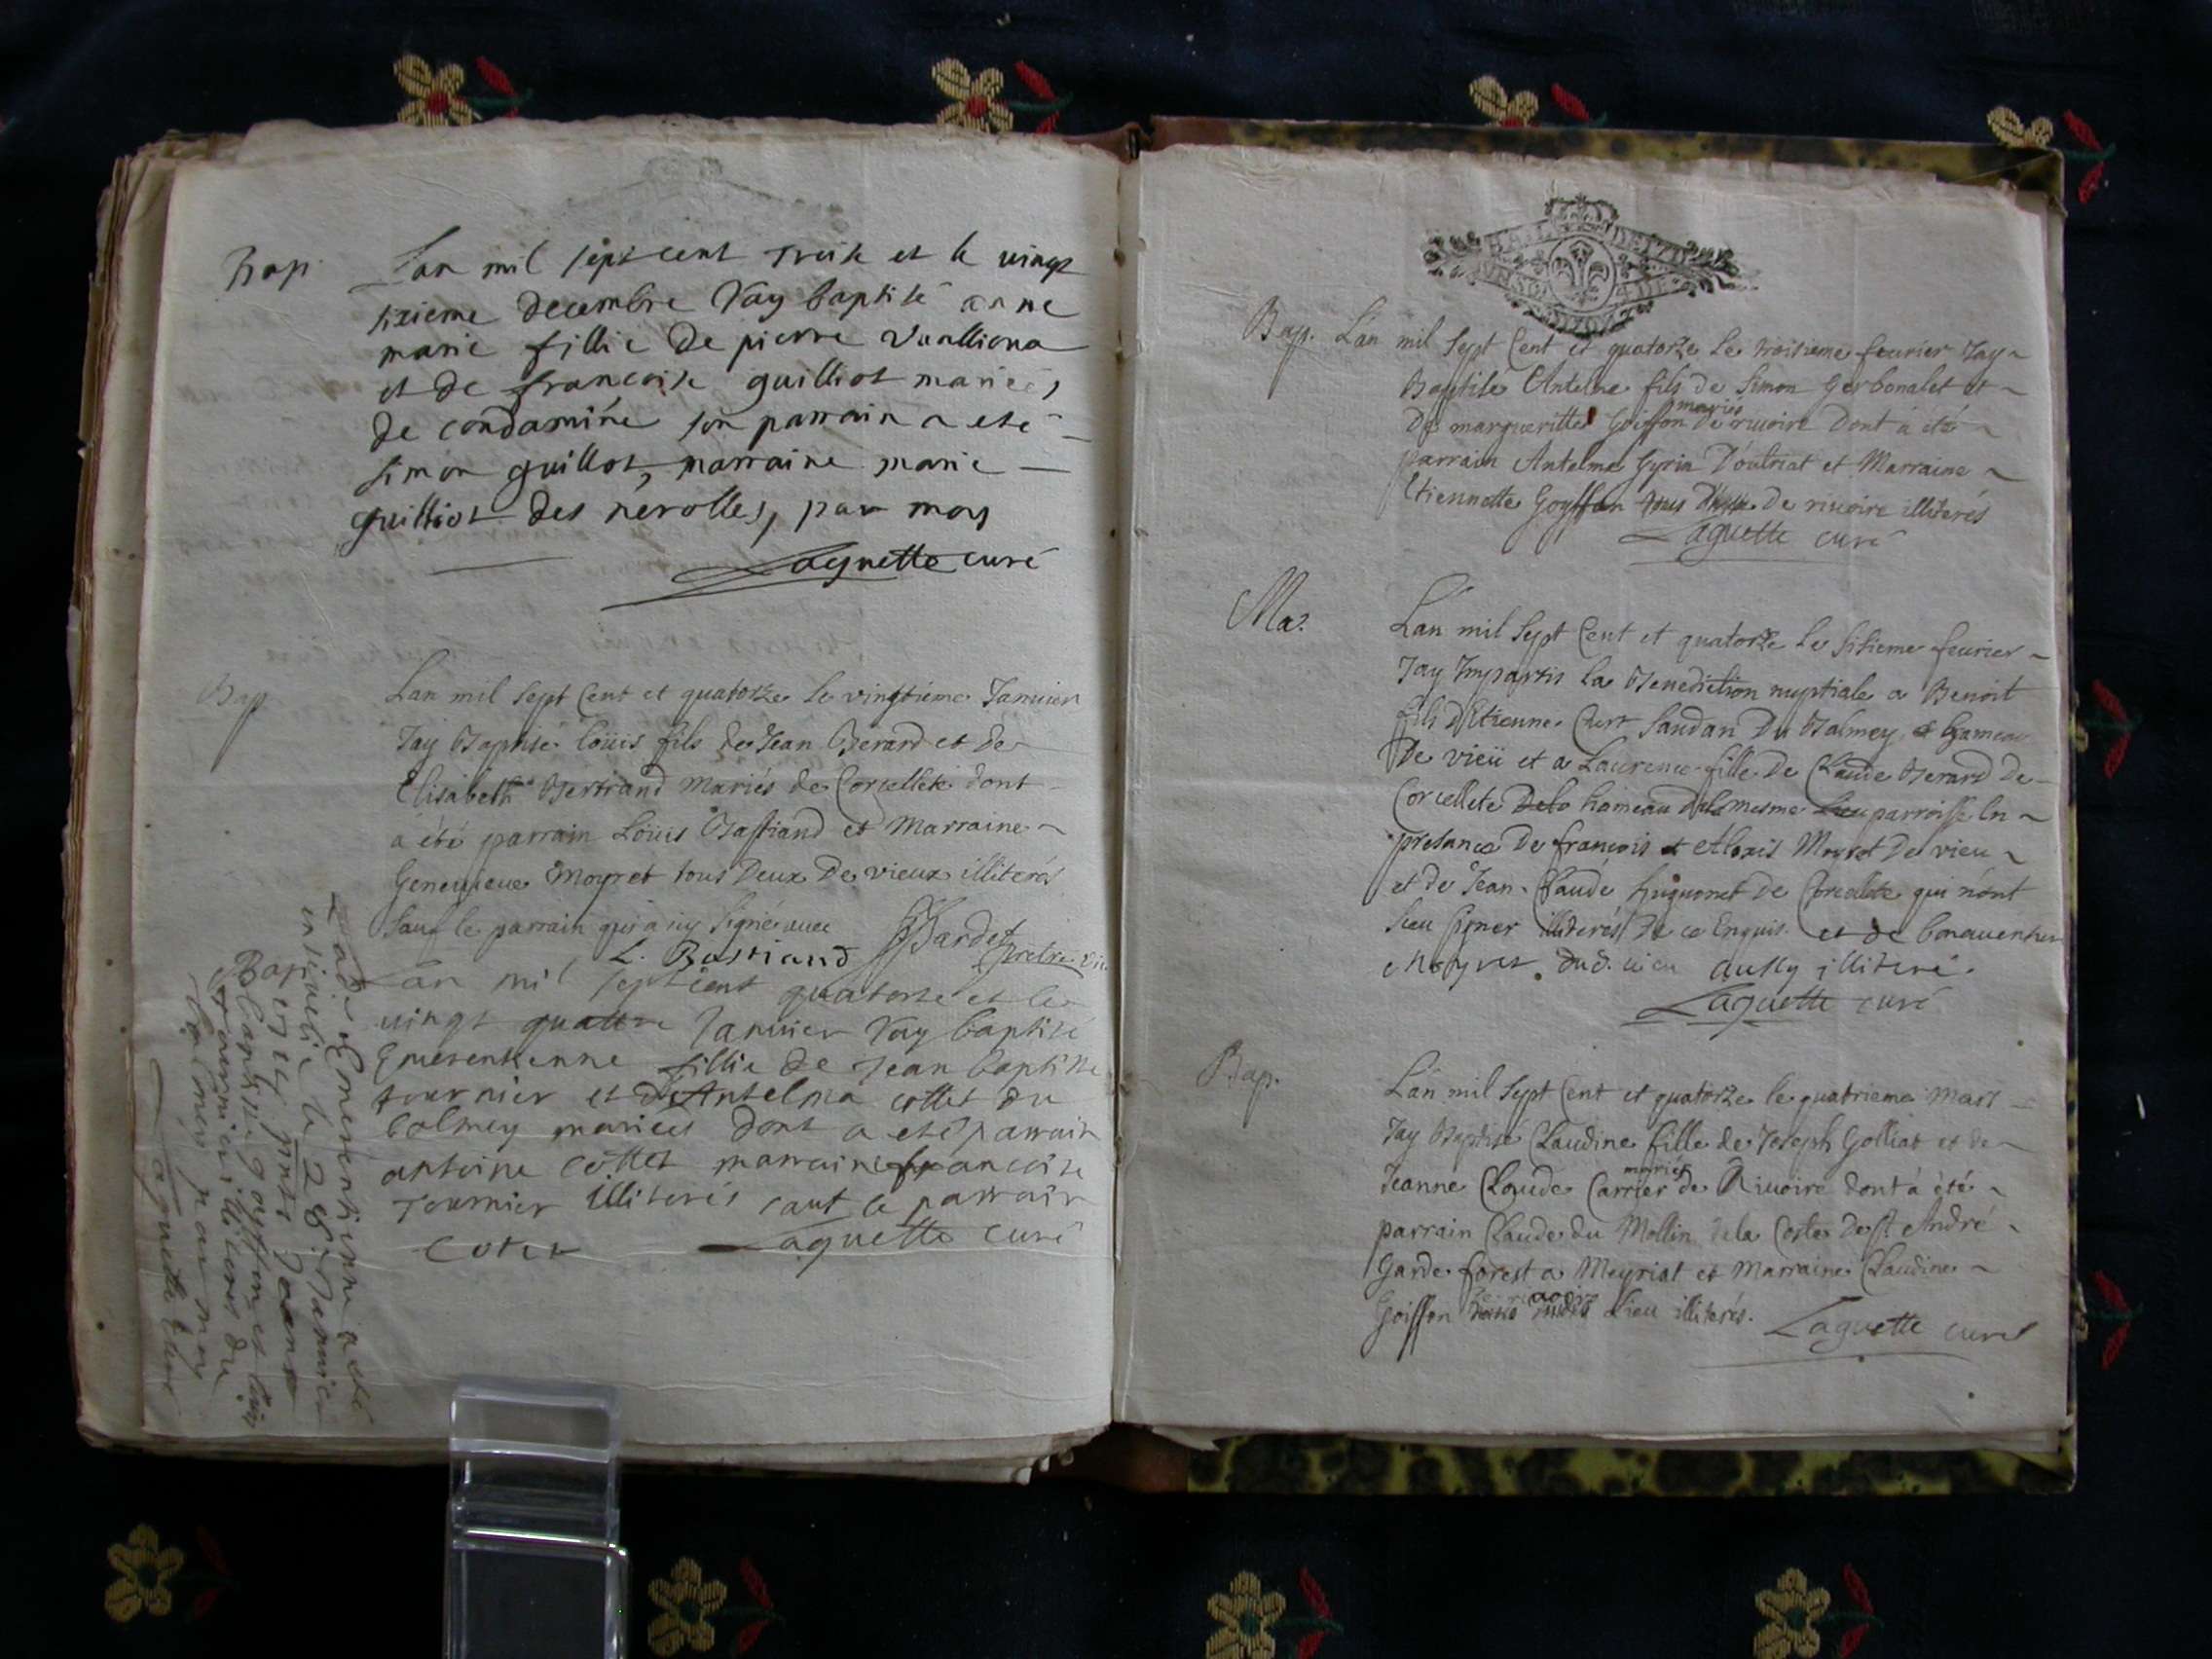 Bap.
Lan mil sept cent treise et le vingt
sixieme decembre Jay baptisé anne
marie fillie De pierre Vualliona
et de francoise guilliot mariees
de condamine son parrain a eté
simon guillot, marraine marie
guilliot des nerolles, par moy
Laguette curé
Bap
Lan mil sept Cent et quatorze le vingtieme Janvier
Jay Baptisé loüis fils de Jean Berard et de
Elisabeth Bertrand Mariés de Corcellete dont
a été parrain Loüis Bastiand et Marraine
Genevieve Moyret tous Deux De vieux illiterés
Sauf le parrain qui a icy Signé avec
L. Bastiand
Bardet prebre vic.
Lan mil septcent quatorse et le
vingt quattre Janvier Jay baptisé
Emerentienne fillie de Jean baptiste
tournier et d'Antelma cottet du
balmey mariees dont a eté parrain
antoine cottet marraine francoise
Tournier illiterés sauf le parrain
Cotet Laguette curé
Ladie Emerentienne a eté
ensevelie le 28e Janvier
Bap
en et pnts Jeanne
Blandine goyffon et
tournier illiteres du
balmey par moy
Laguette curé
BAIL DE 170
UN SOL 4 DE
Bap. Lan mil Sept Cent et quatorze Le troisieme fevrier Jay
Baptisé Antelme fils de Simon Gerbonalet et
mariés
De margueritte Goiffon De rivoire Dont à été
parrain Antelme Gyria D'outriat et Marraine
Etiennette Goyffon tous De rivoire illiterés
Laguette curé
Ma.
Lán mil Sept Cent et quatorze Le Sisieme fevrier
Jay Impartis La Benediction nuptiale a Benoit
fils d'Etienne Cart Saudan Du Balmey hameau
De vieü et a Laurence fille De Claude Berard De
Corcellete Dela hameau mesme Lieu parroisse En
presance De francois et Alexis Moyret De vieu
et de Jean Claude huguonet de Corcellete qui nónt
Sceu Signer illiterés De ce Enquis et de bonaventure
Moyret dud. vieu aussy illiteré.
Laguette curé
Bap.
Lán mil Sept Cent et quatorze le quatrieme Mars
Jay Baptisé Claudine fille de Joseph Golliat et de
mariés
Jeanne Claude Carrier de Rivoire dont à été
parrain Claude du Mollin dela Coste De St. André
Garde forest a Meyriat et Marraine Claudine
Goiffon Lieu illiterés.
Laguette curé